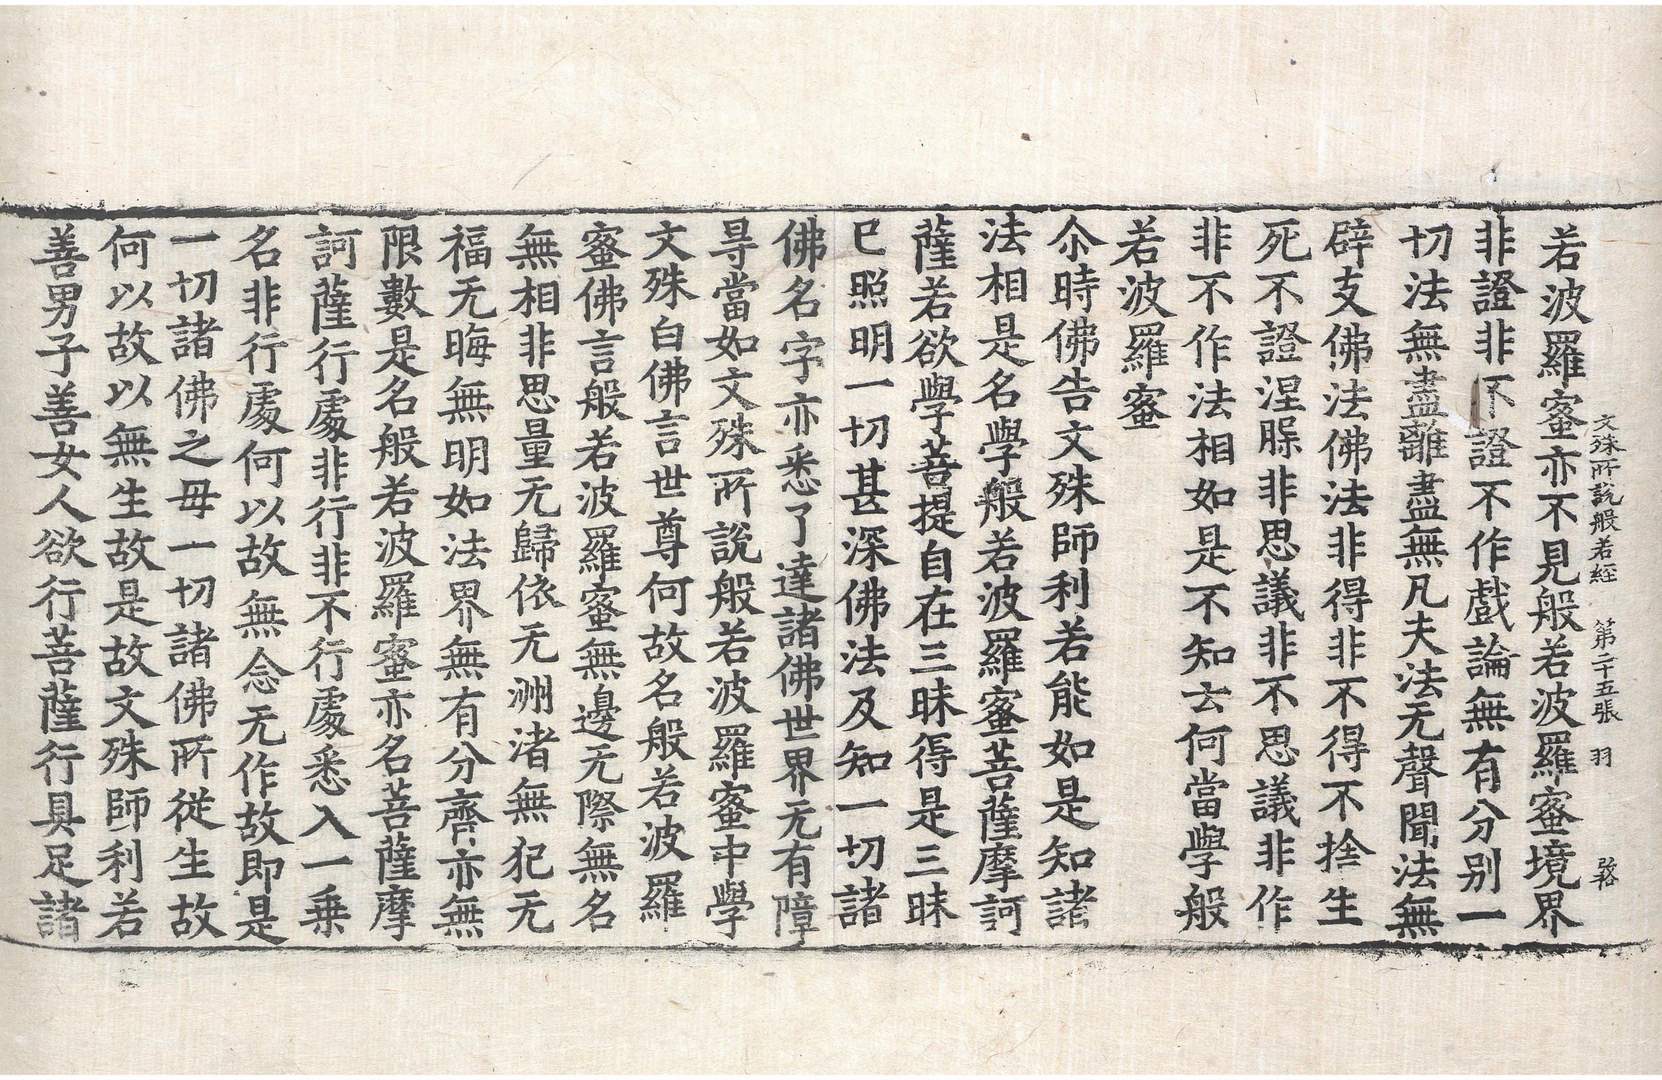 文殊所說般若經 第二十五張 羽 臵
若波羅蜜亦不見般若波羅蜜境界
非證非不證不作戲論無有分别一
切法無盡離盡無凡夫法无聲聞法無
辟支佛法佛法非得非不得不捨生
死不證涅脲非思議非不思議非作
非不作法相如是不知云何當學般
若波羅蜜
尒時佛告文殊師利若能如是知諸
法相是名學般若波羅蜜菩薩摩訶
薩若欲學菩提自在三昧得是三昧
已照明一切甚深佛法及知一切諸
佛名字亦悉了達諸佛世界无有障
㝵當如文殊所說般若波羅蜜中學
文殊白佛言世尊何故名般若波羅
蜜佛言般若波羅蜜無邊无際無名
無相非思量无歸依无洲渚無犯无
福无晦無明如法界無有分齊亦無
限數是名般若波羅蜜亦名菩薩摩
訶薩行處非行非不行處悉入一乗
名非行處何以故無念无作故即是
一切諸佛之毋一切諸佛所從生故
何以故以無生故是故文殊師利若
善男子善女人欲行菩薩行具足諸